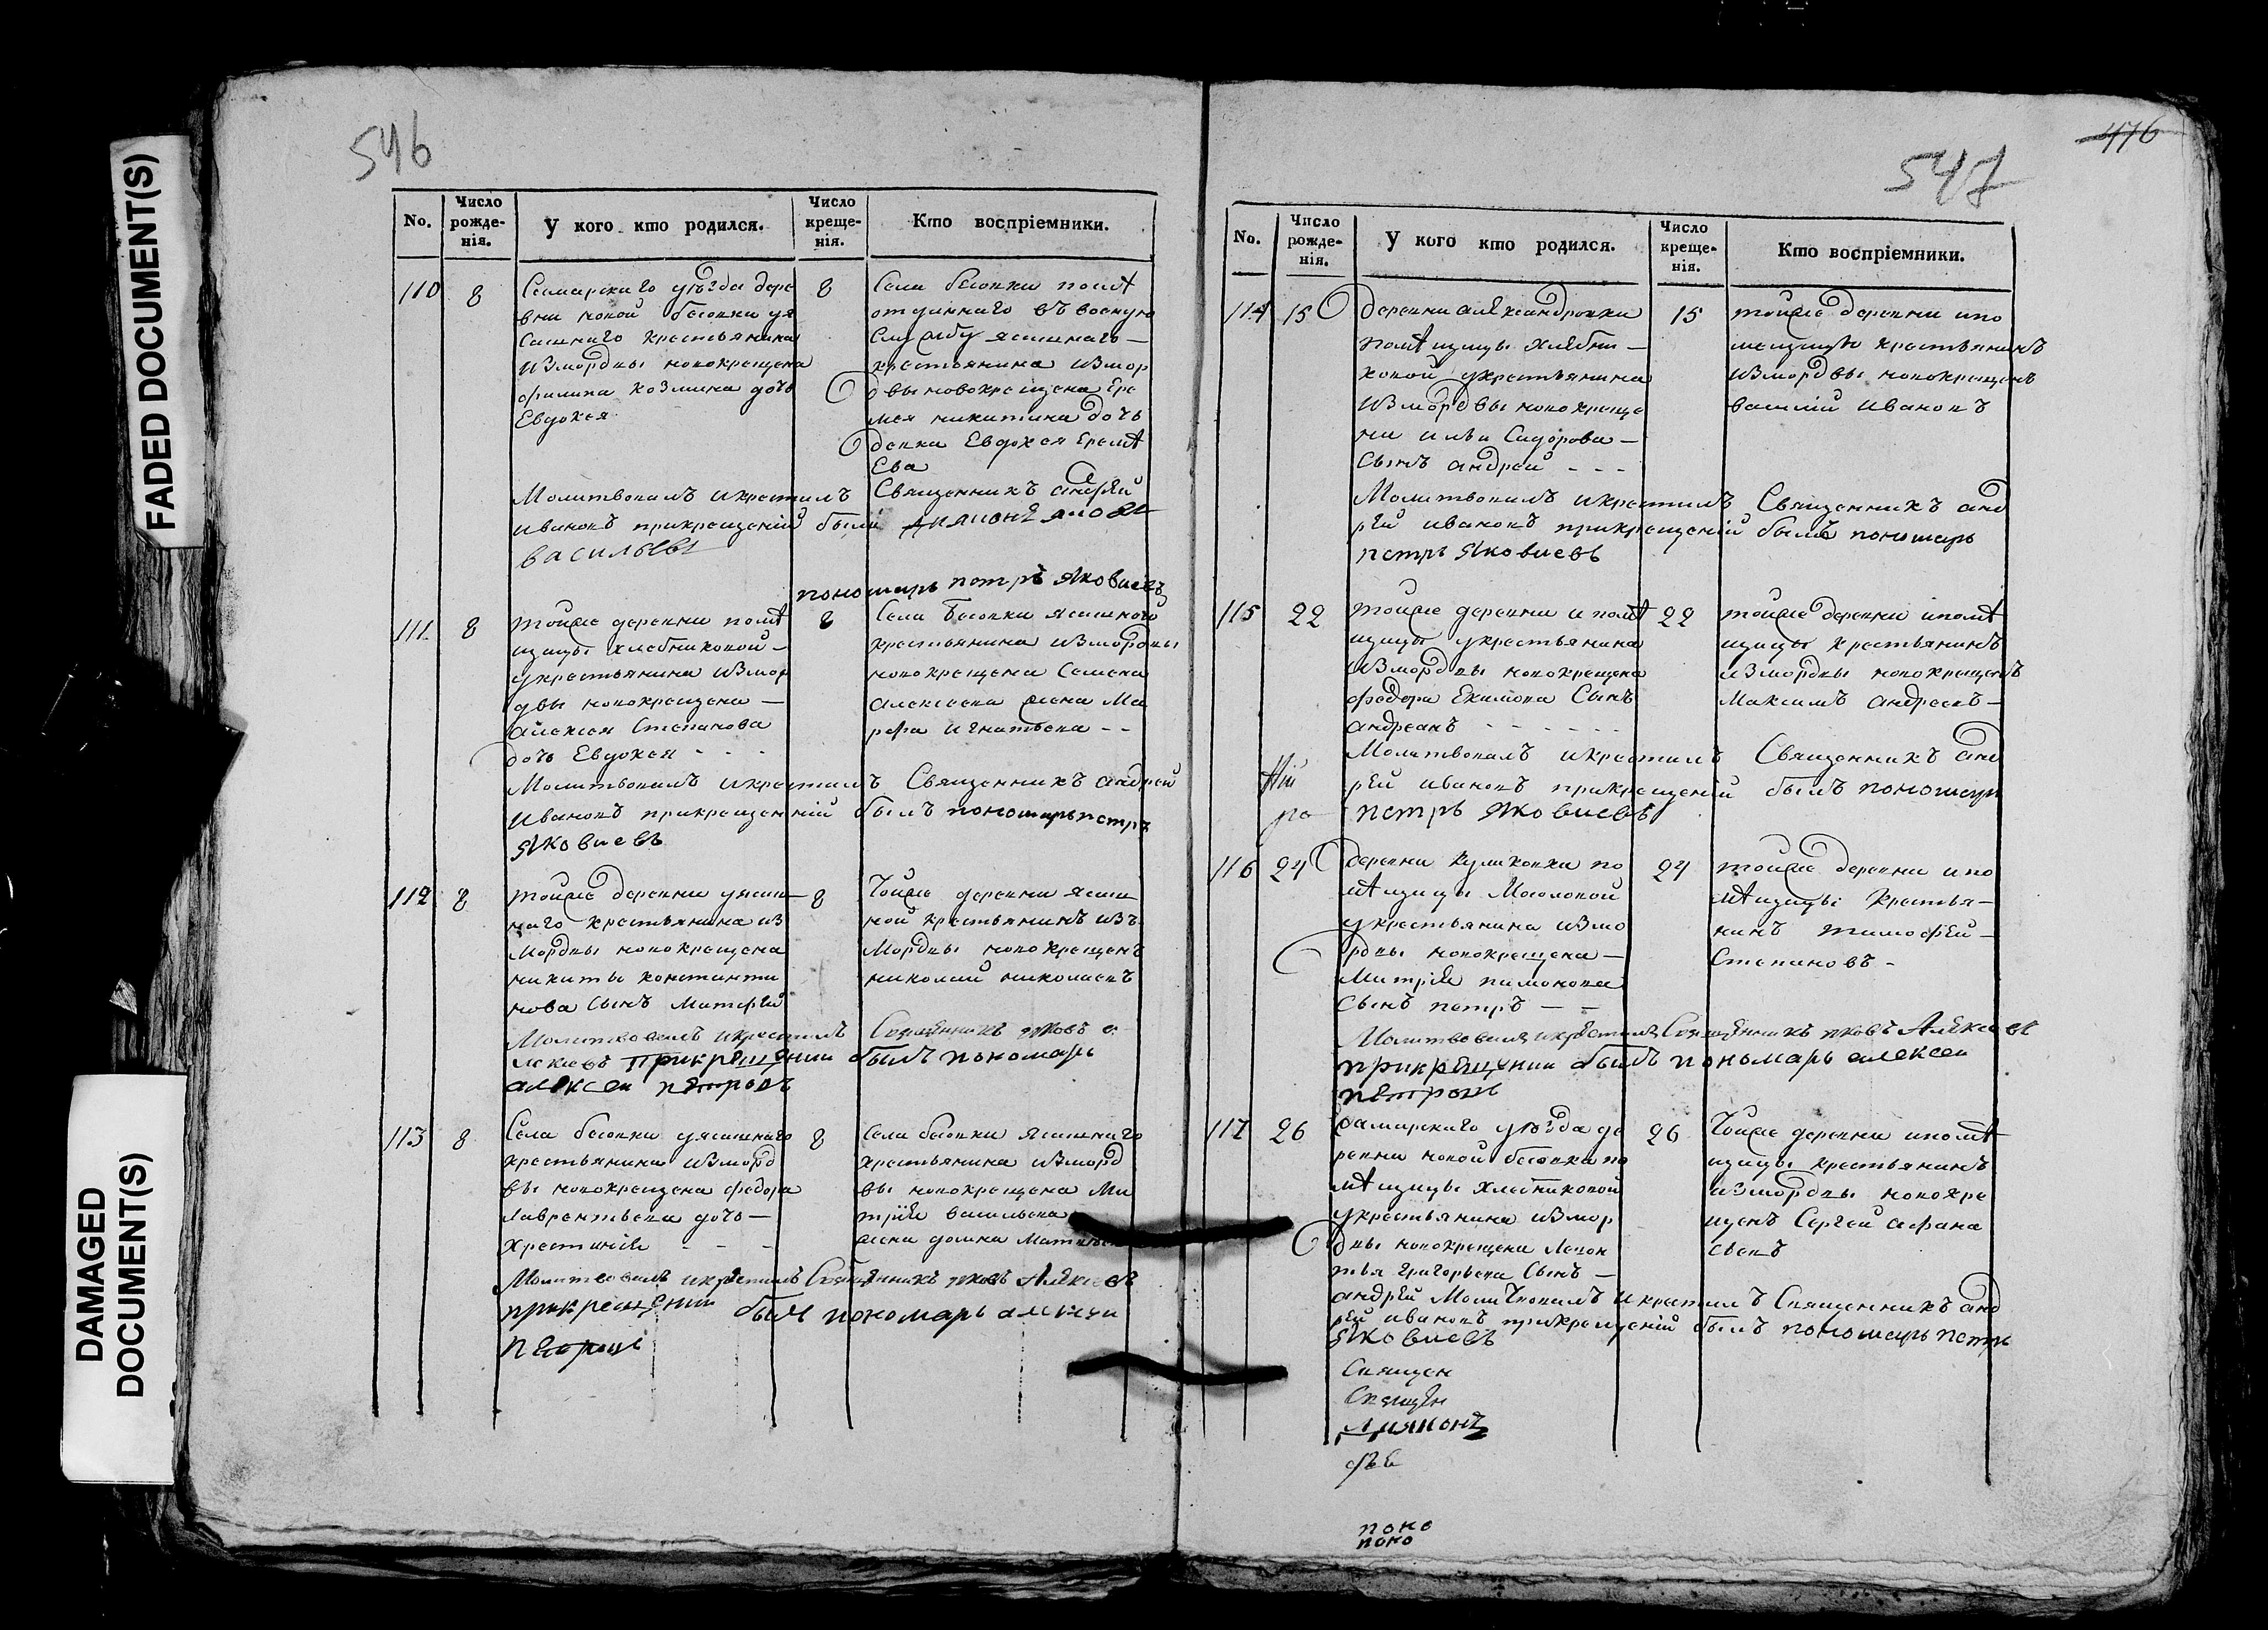 FADED DOCUMENT(S)
DAMAGED
DOCUMENT(S)
546
No.
Число рожде-нія.
У кого кто родился.
Число креще-нія.
Кто воспріемники.
110 8
Самарскаго уѣзда дере
вни новой бесовки уя
сашнаго крестьянина
измордвы новокрещена
филипа козмина дочь
Евдокея
8
Села бесовки
отданнаго въ военую
Службу ясашнаго
крестьянина измор
двы новокрещена Ере
мея никитина дочь
девка Евдокея Еремѣ
Ева
Молитвовалъ икрестилъ Священникъ андрѣй
ивановъ прикрещеніи были
васильевы
пономарь петръ яковлевъ
111 8
тойже деревни помѣ
щицы хлебниковой
укрестьянина измор
двы новокрещена
алексея Степанова
дочь Евдокея
8
Села бесовки ясашного
крестьянина измордвы
новокрещена Семена
алексеева жена Ма
рфа игнатьева
Молитвовалъ икрестилъ Священникъ андрей
ивановъ прикрещенніи былъ пономарь петръ
яковлевъ
112 8
тойже деревни уясаш
наго крестьянина из
Мордвы новокрещена
никиты константи
нова Сынъ Матфей
8
Тойже деревни ясаш
ной крестьянинъ изъ
Мордвы новокрещенъ
николай николаевъ
Молитвовалъ икрестилъ Священникъ яковъ а
лексевъ прикрещении былъ пономарь
алексеи петровъ
113 8
Села бесовки уясашнаго
крестьянина изморд
вы новокрещена федора
лаврентьева дочь
христинія
8
Села бесовки ясашнаго
крестьянина изморд
вы новокрещена Ми
трія васильева
жена домна
Молитвовалъ икрестилъ Священникъ яковъ Алексѣевъ
прикрещении былъ пономарь алексеи
петровъ
476
547
No.
Число рожде-нія.
У кого кто родился.
Число креще-нія.
Кто воспріемники.
114 15
деревни александровки
помѣщицы хлебни
ковой укрестьянина
измордвы новокреще
на ильи Сидорова
Сынъ андрей
15
тойже деревни ипо
мещицы крестьянинъ
измордвы новокрещенъ
василій ивановъ
Молитвовалъ икрестилъ Священникъ анд
рѣй ивановъ прикрещеніи былъ пономарь
петръ яковлевъ
115 22
тойже деревни и помѣ
щицы укрестьянина
измордвы новокрещена
федора Екимова Сынъ
андреанъ
22
тойже деревни ипомѣ
щицы крестьянинъ
измордвы новокрещенъ
Максимъ андреевъ
Молитвовалъ икрестилъ Священникъ анд
рѣй ивановъ прикрещеніи былъ пономарь
петръ яковлевъ
116 24
деревни куликовки по
мѣщицы Мосоловой
укрестьянина измо
рдвы новокрещена
Митрія памонова
Сынъ петръ
24
тойже деревни ипо
мѣщицы крестья
нинъ тимофѣй
Степановъ
Молитвовалъ икрестилъ Священникъ яковъ Алексѣев
прикрещении былъ пономарь алексеи
петровъ
117 26
Самарскаго уѣзда де
ревни новой бесовки по
мѣщицы хлебниковой
укрестьянина измор
двы новокрещена Леон
тья григорьева Сынъ
26
Тойже деревни ипомѣ
щицы крестьянинъ
измордвы новокре
щенъ Сергей афана
сьевъ
андрѣй Молитвовалъ икрестилъ Священникъ анд
рѣй ивановъ прикрещеніи былъ пономарь петръ
яковлевъ
Священ
Священ
диаконъ
поно
поно